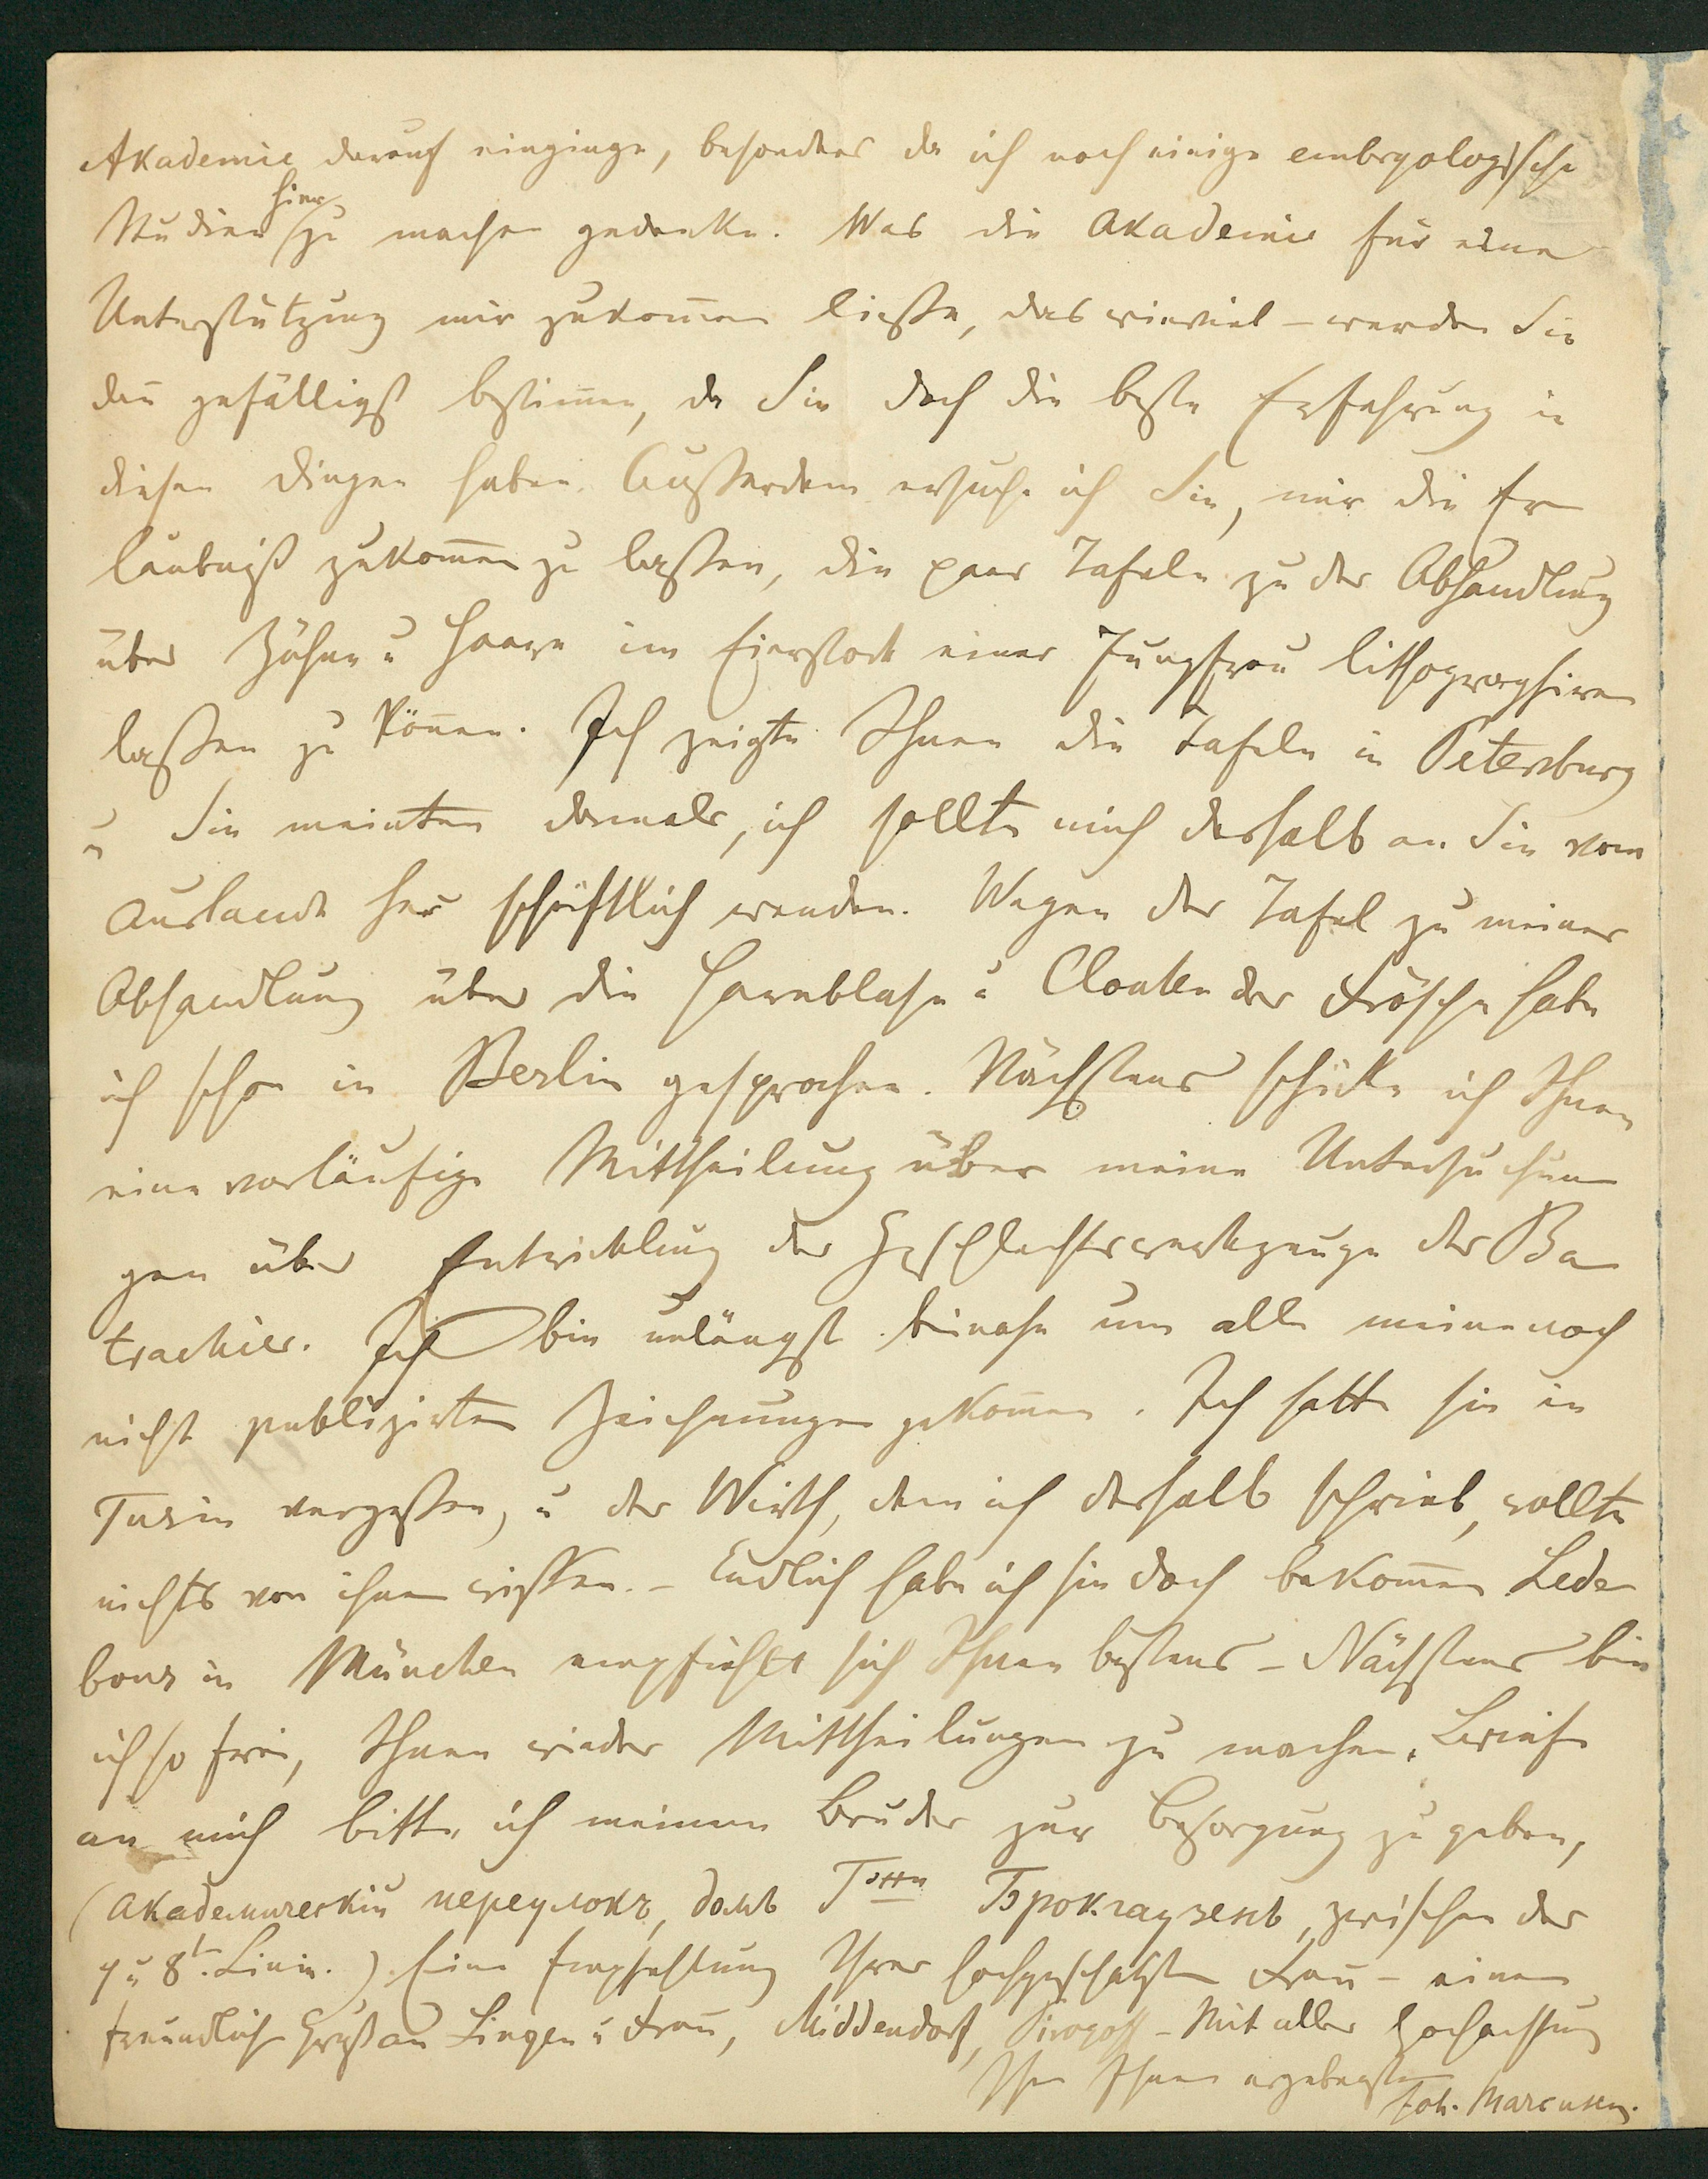 Akademie darauf einginge, besonders da ich noch einige embryologische
Studien hier zu machen gedenke. Was die Akademie für eine
Unterstützung mir zukom̅en ließe, das wieviel – werden Sie
dan̅ gefälligst bestim̅en, da Sie doch die beste Erfahrung in
diesen Dingen haben. Außerdem ersuche ich Sie, mir die Er
laubniß zukom̅en zu laßen, die paar Tafeln zu der Abhandlung
über Zähne u Haare im Eierstock einer Jungfrau lithographiren
laßen zu kön̅en. Ich zeigte Ihnen die Tafeln in Petersburg
u Sie meinten damals, ich sollte mich deshalb an Sie vom
Auslande her schriftlich wenden. Wegen der Tafel zu meiner
Abhandlung über die Harnblase u Cloake der Frösche habe
ich schon in Berlin gesprochen. Nächstens schicke ich Ihnen
eine vorläufige Mittheilung über meine Untersuchun
gen über Entwicklung der Geschlechtswerkzeuge der Ba
trachier. Ich bin unlängst beinahe um alle meine noch
nicht publizirten Zeichnungen gekom̅en. Ich hatte sie in
Turin vergeßen, u der Wirth, dem ich deshalb schrieb, wollte
nichts von ihnen wißen. – Endlich habe ich sie doch bekom̅en Lede
bour in München empfiehlt sich Ihnen bestens – Nächstens bin
ich so frei, Ihnen wieder Mittheilungen zu machen. Briefe
an mich bitte ich meinem Bruder zur Besorgung zu geben,
(Академическiй переулокъ, домъ Гжи Брокгаузенъ, zwischen der
7 u 8t. Linie.) Eine Empfehlung Ihrer hochgeschätzten Frau – einen
freundlichen Gruß an Lingen u Frau, Middendorf, Pirogoff – Mit aller Hochachtung
Ihr Ihnen ergebenster
Joh. Marcusen.